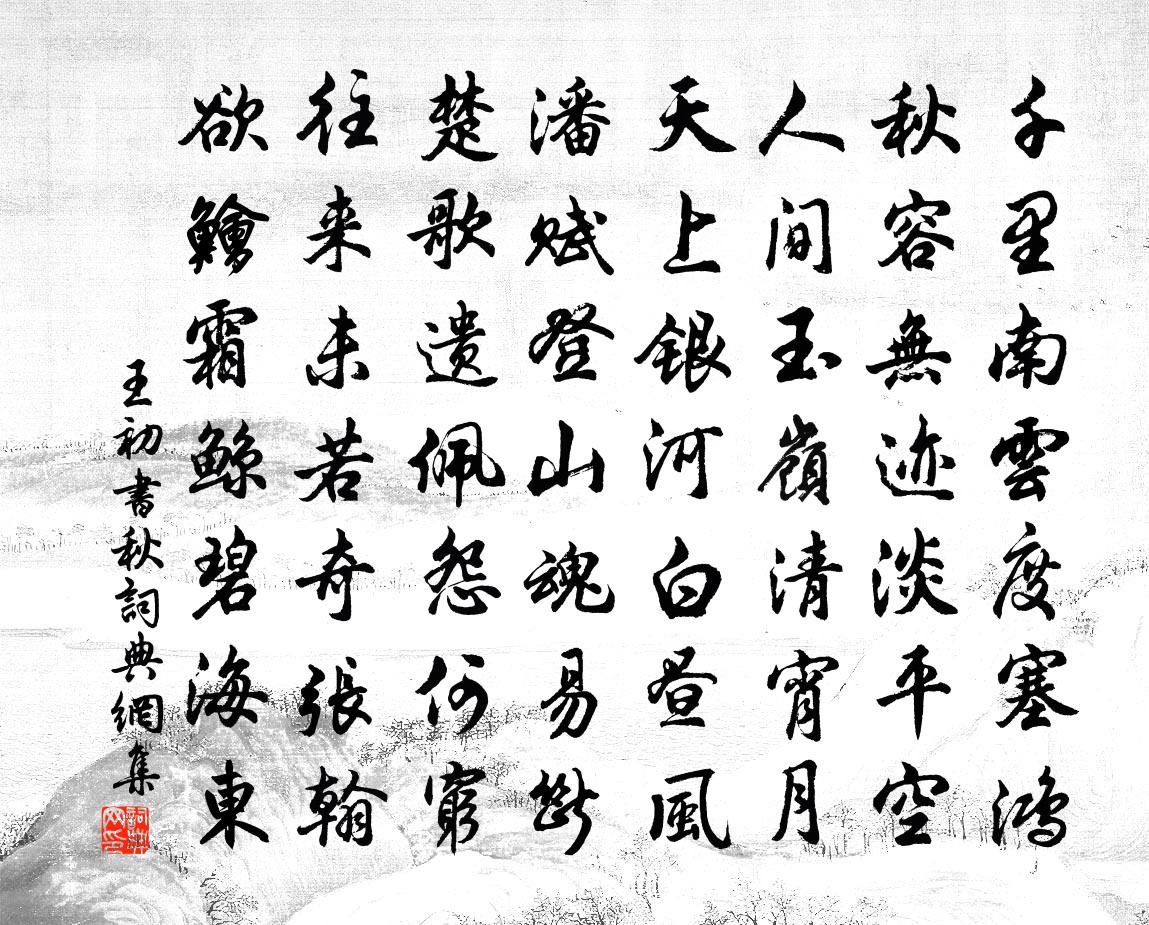 千里南雲度塞鴻
秋容無迹淡平空
人間玉嶺清宵月
天上銀河白昼風
潘賦登山魂易斷
楚歌遺佩怨何窮
往来未若奇張翰
欲鱠霜鯨碧海東
王初書秋詞典網集
詞典網印